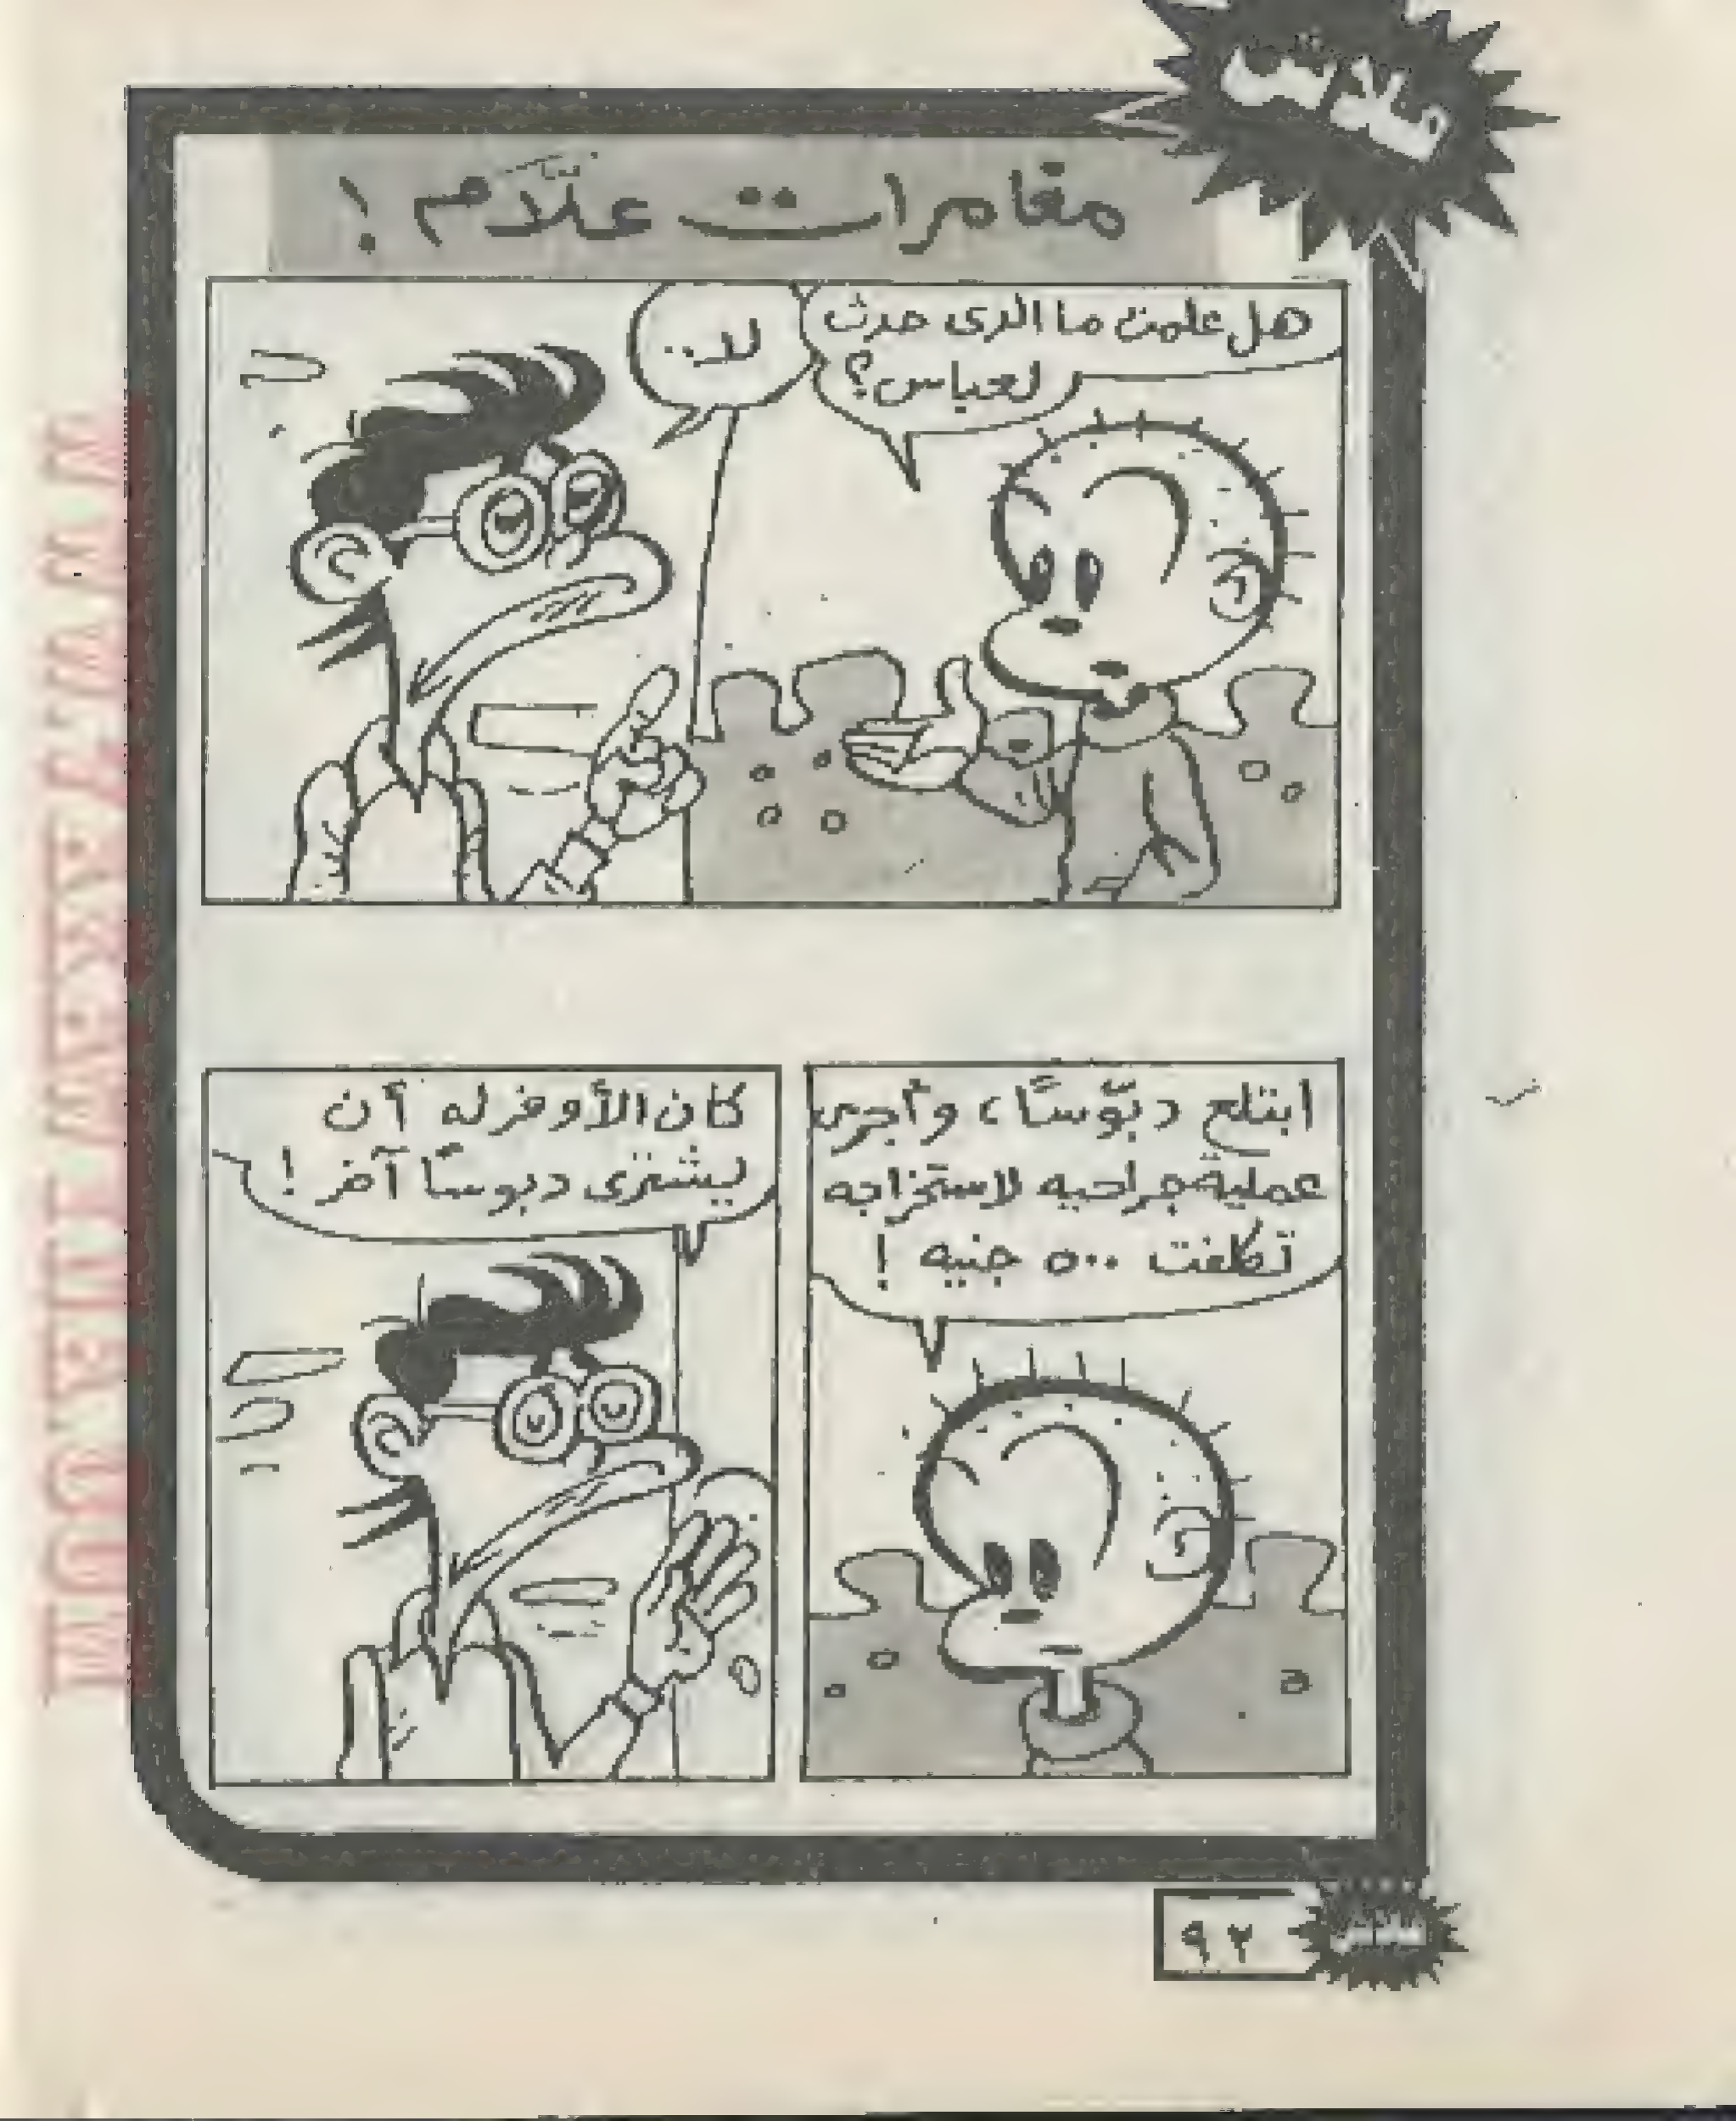 فلاش
مغامرات علّام !
هل علمت ما الذى حدث
لعباس؟
لا..
ابتلع دبّوسًا، وأجرى
عملية جراحيه لاستخراجه
تكلفت ٥٠٠ جنيه !
كان الأوفر له أن
يشترى دبوسًا آخر !
٩٢
فلاش